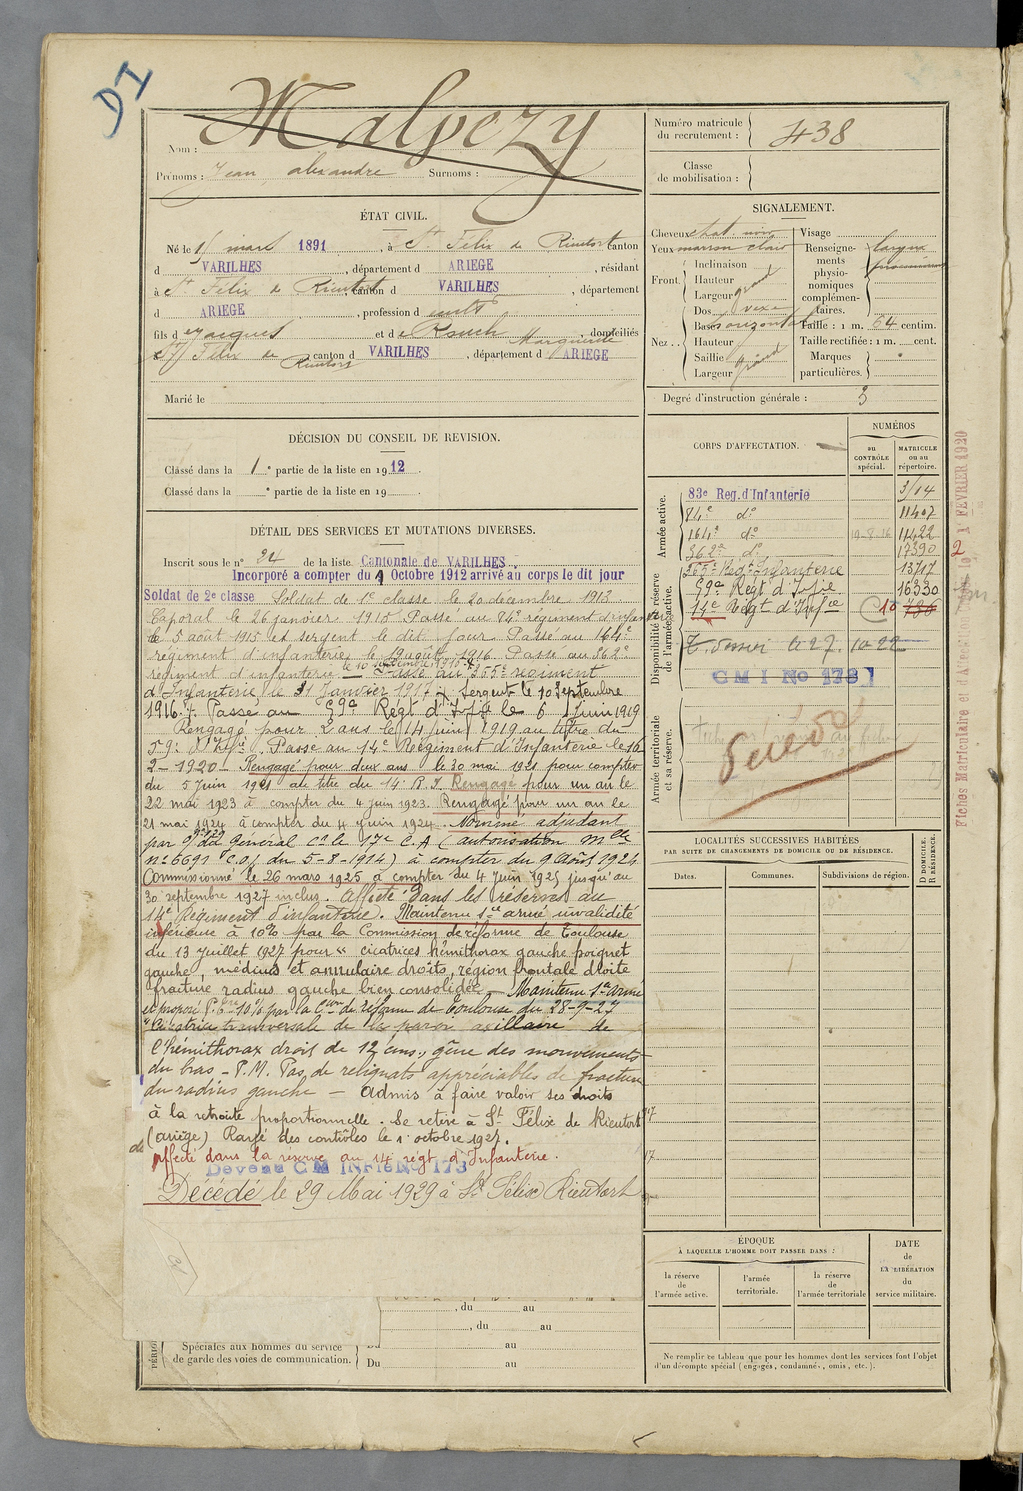 DI
Nom : Malpezy
Prénoms : Jean, alexandre Surnoms :
Numéro matricule du recrutement : 438
Classe de mobilisation :
ÉTAT CIVIL.
Né le 15 mars 1891, à St Félix de Rieutort canton
d VARILHES, département d ARIEGE, résidant
à St Félix de Rieutort, canton d VARILHES, département
d ARIEGE, profession d cultr
fils d Jacques et de Rouch Marguerite, domiciliés
à St Félix de Rieutort canton d VARILHES, département d ARIEGE
Marié le
SIGNALEMENT.
Cheveux chat. noir
Yeux marron clair
Front.
Inclinaison
Hauteur grand
Largeur
Nez..
Dos vexe
Base horizontal
Hauteur
Saillie grand
Largeur
Visage
Renseignements physionomiques complémentaires. larynx
Taille : 1 m. 64 centim.
Taille rectifiée : 1 m. cent.
Marques particulières.
Degré d'instruction générale : 3
DÉCISION DU CONSEIL DE REVISION.
Classé dans la 1e partie de la liste en 1912.
Classé dans la e partie de la liste en 19
DÉTAIL DES SERVICES ET MUTATIONS DIVERSES.
Inscrit sous le n° 24 de la liste Cantonale de VARILHES
Incorporé a compter du 9 Octobre 1912 arrivé au corps le dit jour
Soldat de 2e classe Soldat de 1e classe le 20 décembre 1913
Caporal le 26 janvier 1915 Passé au 84e régiment d'infanterie
le 5 août 1915 et sergent le dit jour Passé au 164e
régiment d'infanterie le 19 août 1916 Passé au 362e
régiment d'infanterie le 10 septembre 1916. Passé au 355e régiment
d'Infanterie le 31 Janvier 1917 + Sergent le 10 Septembre
1916. +. Passé au 59e Regt d'Infie le 6 Juin 1919
Rengagé pour 2 ans le 14 juin 1919 au titre du
59e d'Infie. Passé au 14e Régiment d'Infanterie le 16
2-1920 - Rengagé pour deux ans le 30 mai 1921 pour compter
du 5 Juin 1921 au titre du 14e R.I. Rengagé pour un an le
22 mai 1923 à compter du 4 juin 1923. Rengagé pour un an le
21 mai 1924 à compter du 4 juin 1924. Nommé adjudant
par du Général ct le 17e C.A (autorisation Mlle
n° 6691 C.O/. du 5-8-1914) à compter du 9 août 1924
Commissionné le 26 mars 1925 à compter du 4 Juin 1925 jusqu'au
30 septembre 1927 inclus. Affecté dans les réserves au
14e Régiment d'infanterie. Maintenu service armé invalidité
inférieure à 10% par la Commission de réforme de Toulouse
du 13 Juillet 1927 pour "cicatrices hémithorax gauche poignet
gauche, médius et annulaire droits, région frontale droite
fracture radius gauche bien consolidée - Maintenu Sce armé
et proposé P. Pte 10% par la Con de réforme de Toulouse du 28-9-27
"Cicatrice transversale de la paroi axillaire de
l'hémithorax droit de 12 cms., gêne des mouvements
du bras - P.M. Pas de reliquats appréciables de fracture
du radius gauche - Admis à faire valoir ses droits
à la retraite proportionnelle. Se retire à St Félix de Rieutort
(Ariège) Rayé des contrôles le 1er octobre 1927.
Affecté dans la réserve au 14 régt d'Infanterie.
Devenu CM INFie No 173
Décédé le 29 Mai 1929 à St Félix Rieutort
CORPS D'AFFECTATION.
NUMÉROS
au CONTRÔLE spécial.
MATRICULE ou au répertoire.
Armée active.
83e Reg. d'Infanterie 3/14
84e do 11407
164e do 19-8-16 11422
362e do 17390
355e Régt Infanterie 13717
Disponibilité et réserve de l'armée active.
59e Régt d'Infie 16330
14e Régt d'Infie
C M I No 173
Armée territoriale et sa réserve.
Décédé
Fiches Matriculaire et d'Affection 1 FEVRIER 1920
LOCALITÉS SUCCESSIVES HABITÉES
PAR SUITE DE CHANGEMENTS DE DOMICILE OU DE RÉSIDENCE.
D DOMICILE. R RÉSIDENCE.
Dates. Communes. Subdivisions de région.
ÉPOQUE
À LAQUELLE L'HOMME DOIT PASSER DANS :
la réserve de l'armée active.
l'armée territoriale.
la réserve de l'armée territoriale
DATE de LA LIBÉRATION du service militaire.
Ne remplir ce tableau que pour les hommes dont les services font l'objet
d'un décompte spécial (engagés, condamnés, omis, etc.).
, du au
, du au
Spéciales aux hommes du service
de garde des voies de communication.
Du au
Du au